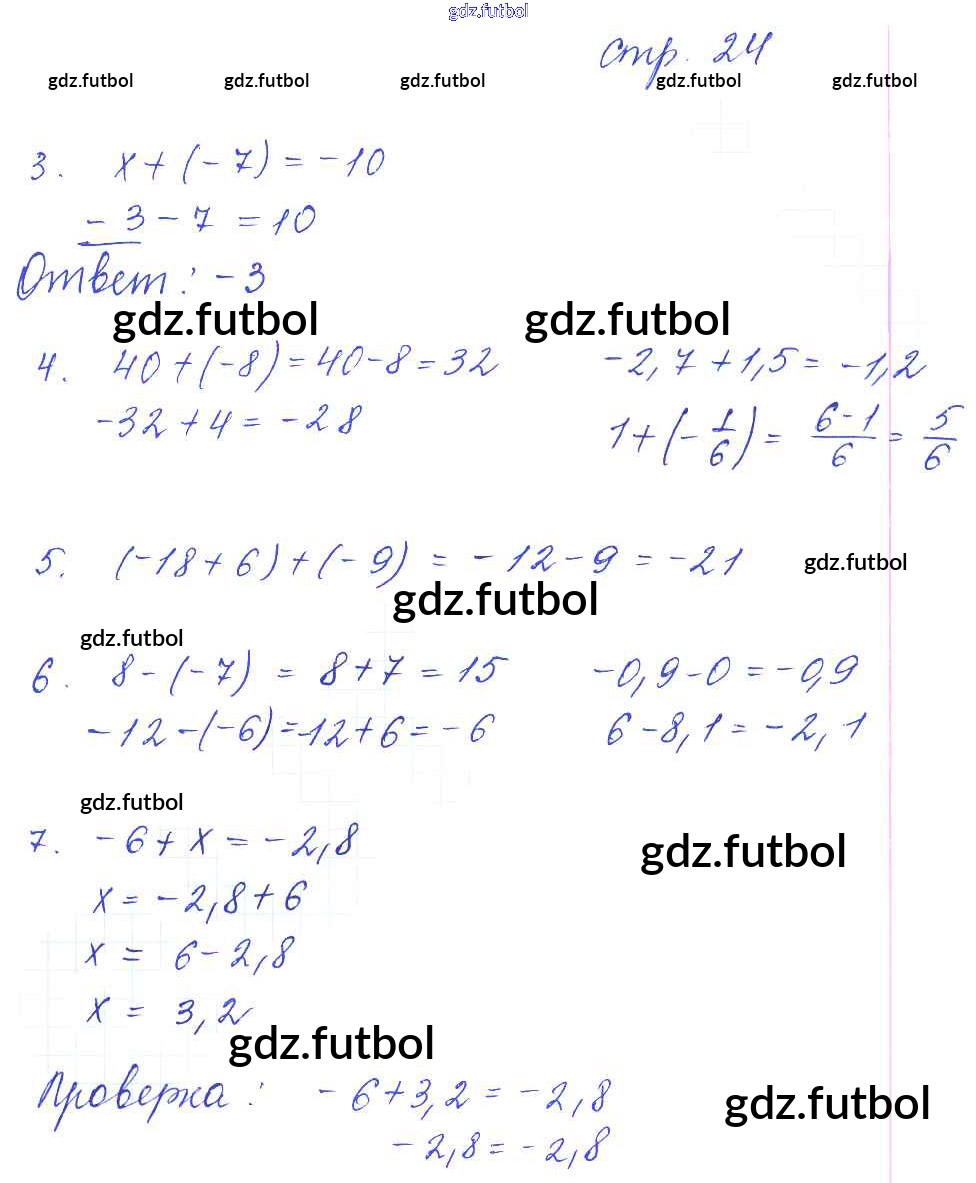 gdz.futbol
стр. 24
gdz.futbol gdz.futbol gdz.futbol gdz.futbol gdz.futbol
3. x + (-7) = -10
-3 - 7 = 10
Ответ: -3
gdz.futbol gdz.futbol
4. 40 + (-8) = 40 - 8 = 32
-32 + 4 = -28
-2,7 + 1,5 = -1,2
1 + (-1/6) = (6-1)/6 = 5/6
5. (-18 + 6) + (-9) = -12 - 9 = -21
gdz.futbol
gdz.futbol
gdz.futbol
6. 8 - (-7) = 8 + 7 = 15
-12 - (-6) = -12 + 6 = -6
-0,9 - 0 = -0,9
6 - 8,1 = -2,1
gdz.futbol
7. -6 + x = -2,8
gdz.futbol
x = -2,8 + 6
x = 6 - 2,8
x = 3,2
gdz.futbol
Проверка: -6 + 3,2 = -2,8
gdz.futbol
-2,8 = -2,8